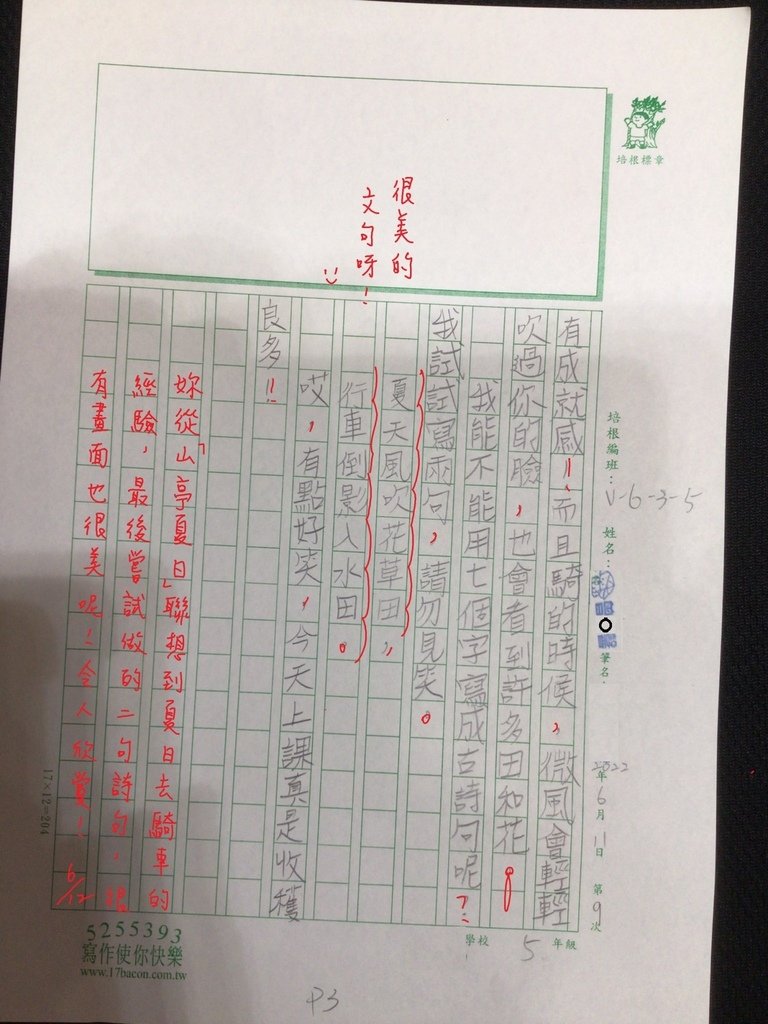 培根標章
很美的
文句呀！
培根編班：V-6-3-5
姓名：
筆名：
2022年6月11日 第9次
學校 5 年級
有成就感！，而且騎的時候，微風會輕輕
吹過你的臉，也會看到許多田和花。
我能不能用七個字寫成古詩句呢？
我試試寫兩句，請勿見笑。
夏天風吹花草田，
行車倒影入水田。
哎，有點好笑，今天上課真是收穫
良多！！
妳從「山亭夏日」聯想到夏日去騎車的
經驗，最後嘗試做的二句詩句，很
有畫面也很美呢！令人欣賞！ 6/12
17×12=204
5255393
寫作使你快樂
www.17bacon.com.tw
P3